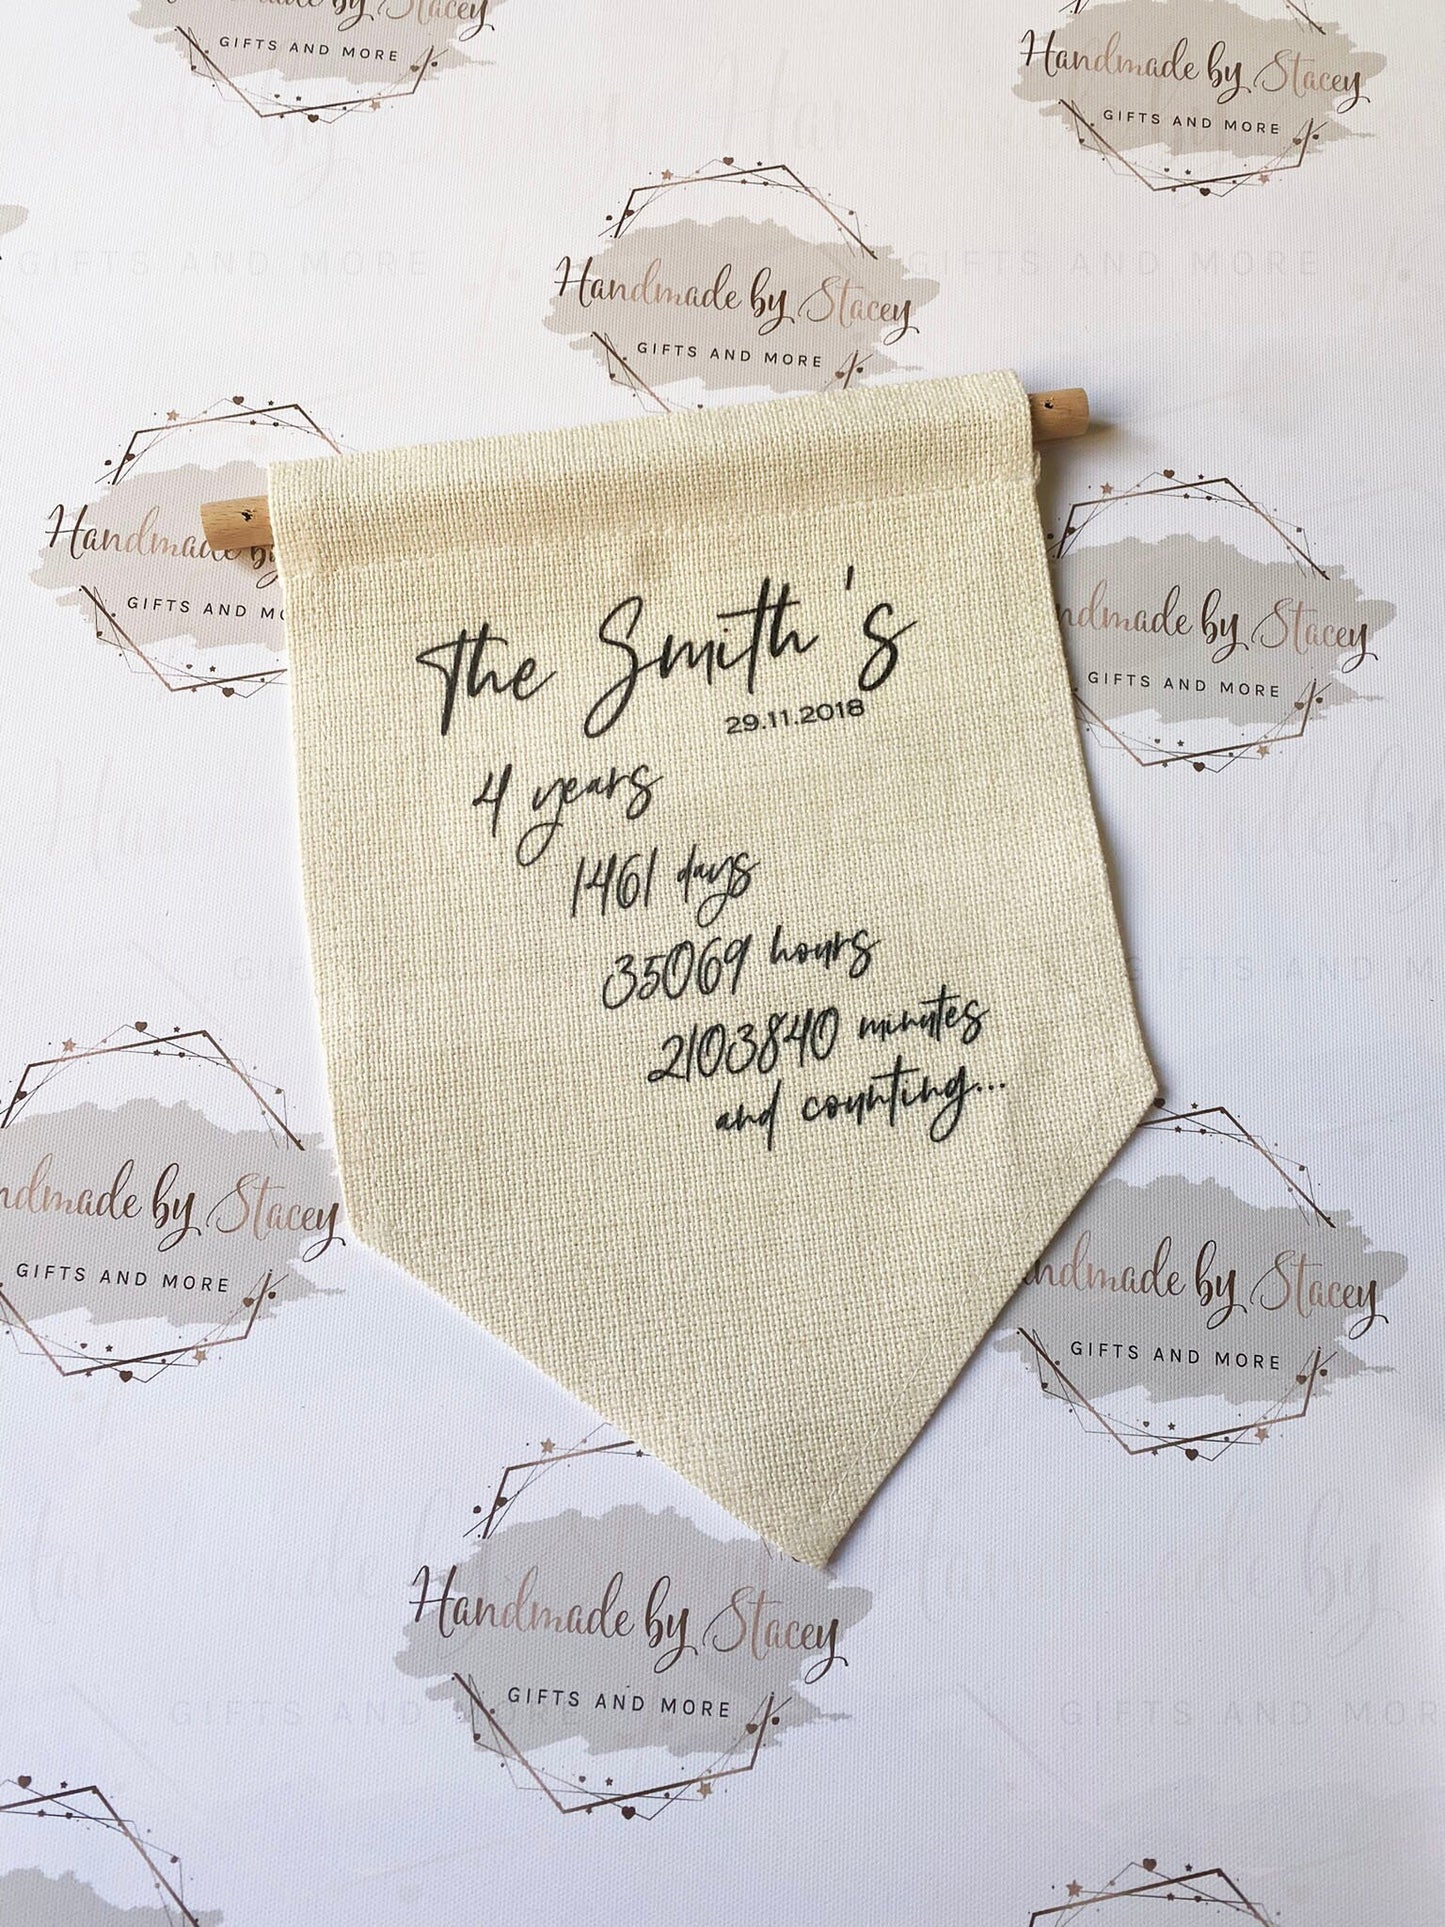 Handmade by Stacey
GIFTS AND MORE
Handmade by Stacey
GIFTS AND MORE
Handmade by Stacey
GIFTS AND MORE
GIFTS AND MORE
GIFTS AND MORE
Handmade by
GIFTS AND MO
ndmade by Stacey
GIFTS AND MORE
The Smith's
29.11.2018
4 years
1461 days
35069 hours
2103840 minutes
and counting...
ndmade by Stacey
GIFTS AND MORE
andmade by Stacey
GIFTS AND MORE
Handmade by Stacey
GIFTS AND MORE